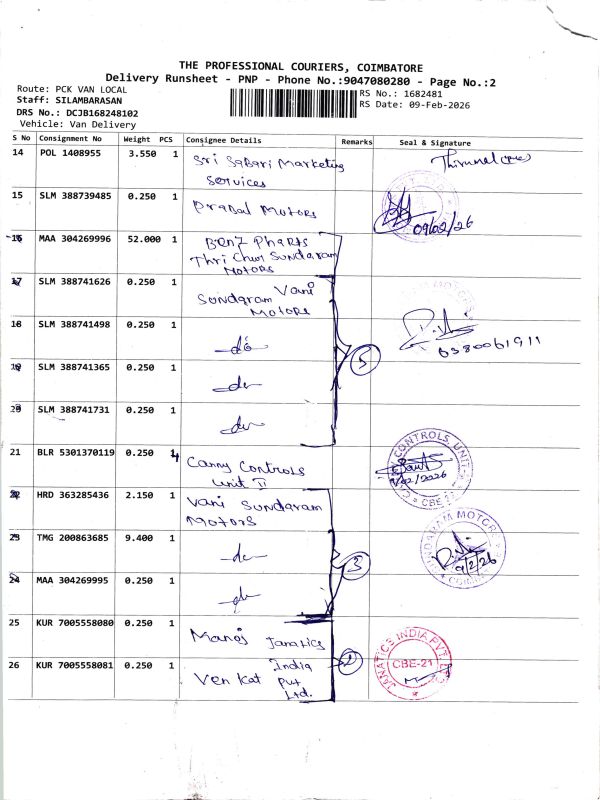 THE PROFESSIONAL COURIERS, COIMBATORE
Delivery Runsheet - PNP - Phone No.:9047080280 - Page No.:2
Route: PCK VAN LOCAL
RS No.: 1682481
Staff: SILAMBARASAN
RS Date: 09-Feb-2026
DRS No.: DCJB168248102
Vehicle: Van Delivery
S No Consignment No Weight PCS Consignee Details Remarks Seal & Signature
14 POL 1408955 3.550 1 Sri Sabari Marketing
Services
15 SLM 388739485 0.250 1 Prabal Motors
09/02/26
16 MAA 304269996 52.000 1 Benz Pharts
Thri Chur Sundaram
Motors
17 SLM 388741626 0.250 1 Vani
Sundaram
Motors
18 SLM 388741498 0.250 1 do
6380061911
19 SLM 388741365 0.250 1 do
5
20 SLM 388741731 0.250 1 do
21 BLR 5301370119 0.250 1 Canny Controls
Unit II
CONTROLS, UNIT
CBE
22 HRD 363285436 2.150 1 Vani Sundaram
Motors
23 TMG 200863685 9.400 1 do
3
SUNDARAM MOTORS
9/2/26
24 MAA 304269995 0.250 1 do
25 KUR 7005558080 0.250 1 Manoj Janatics
26 KUR 7005558081 0.250 1 India
Venkat Pvt
Ltd.
2
JANATICS INDIA PVT. LTD.
CBE-21